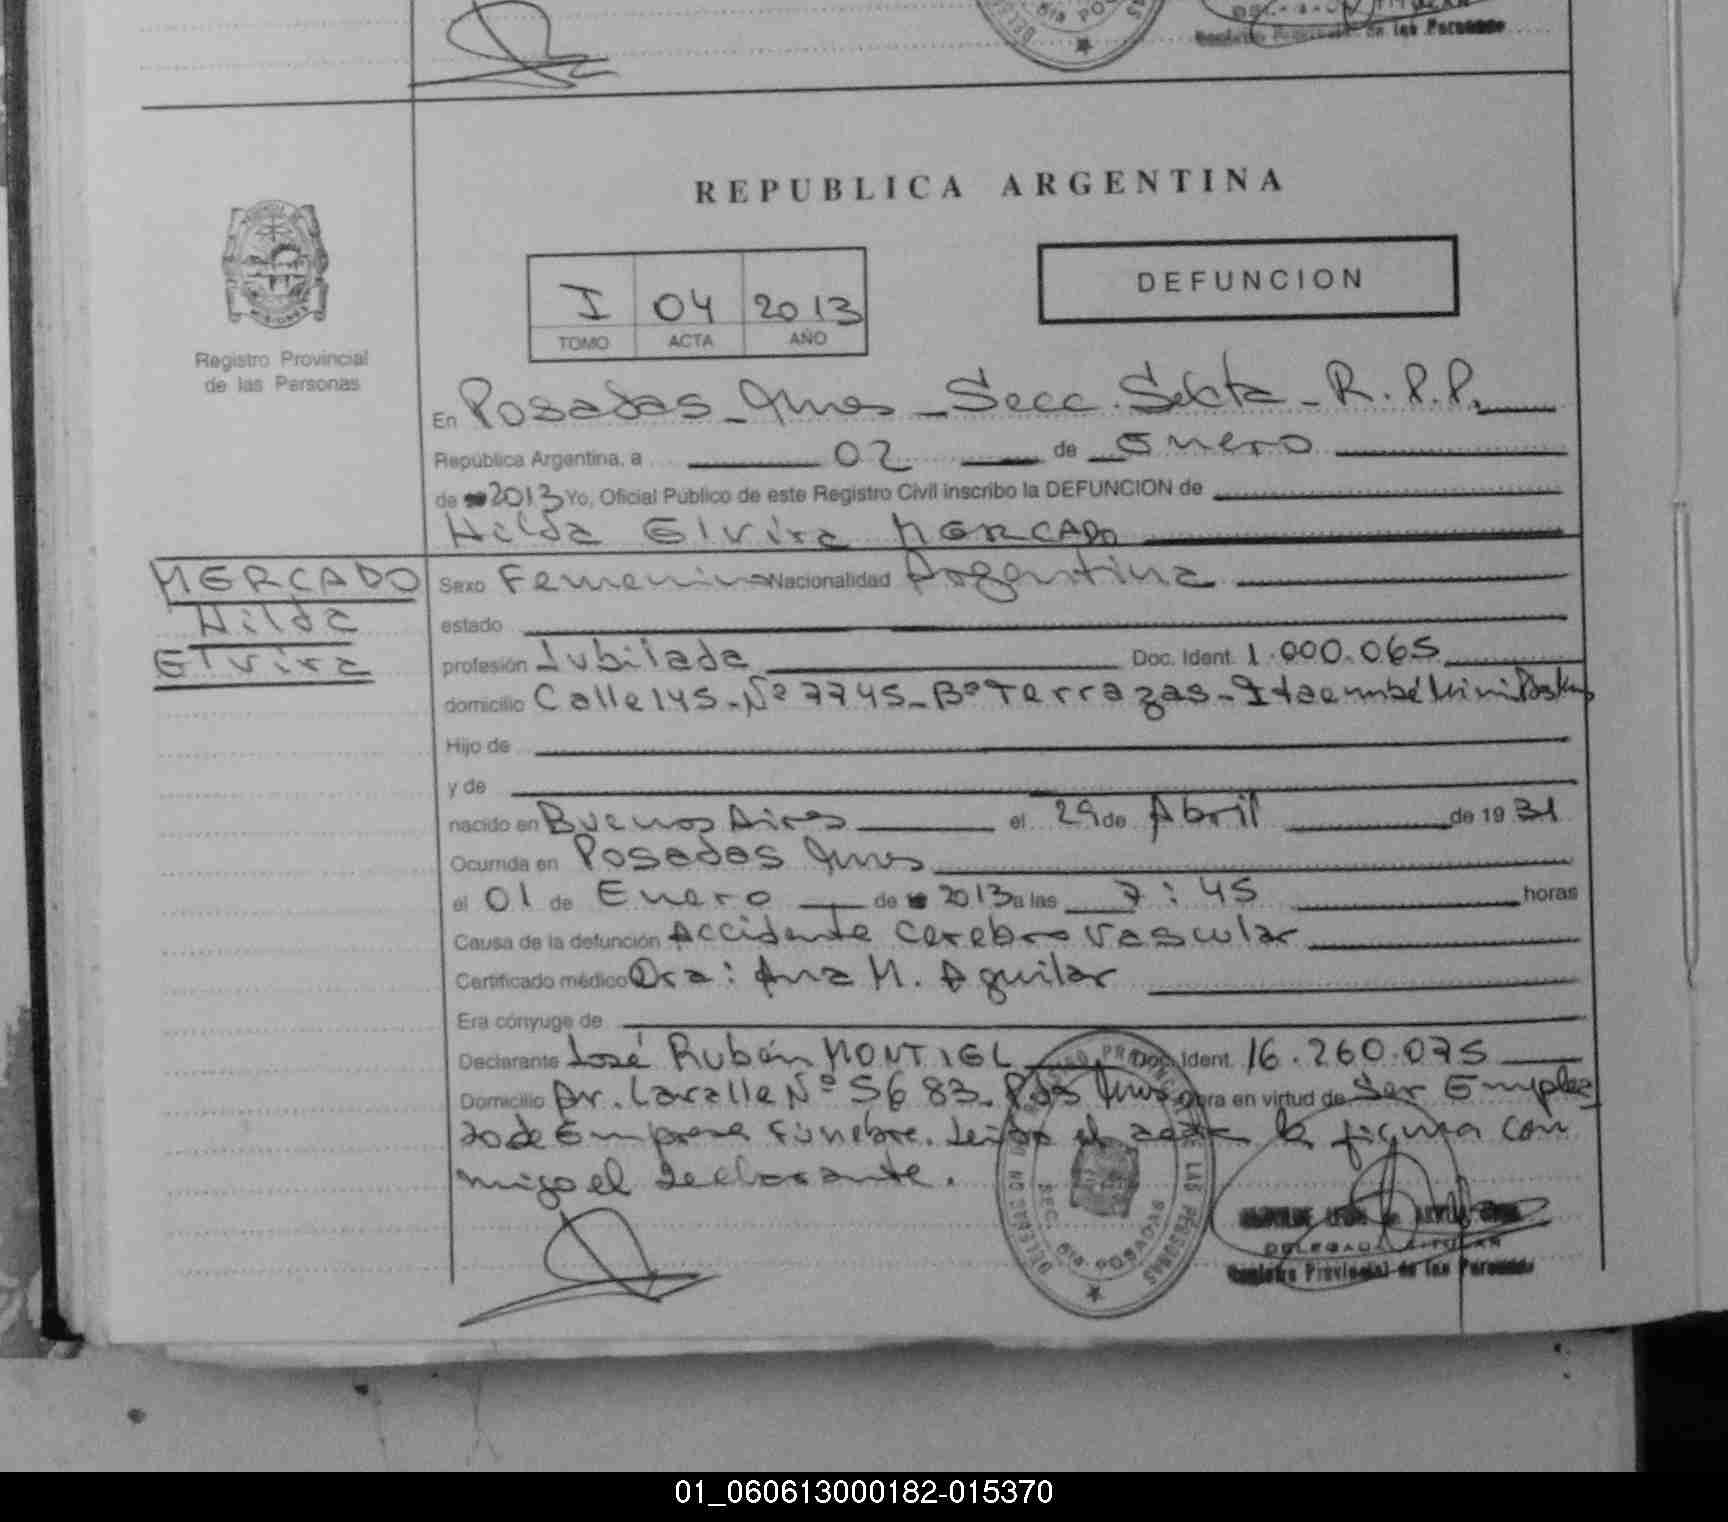 DELE
6ta PO
Registro Provincial de las Personas
REPUBLICA ARGENTINA
I 04 2013
TOMO ACTA AÑO
DEFUNCION
MISIONES
Registro Provincial
de las Personas
En Posadas - Mnes - Secc. Sexta - R.P.P.
República Argentina, a 02 de Enero
de 2013 Yo, Oficial Público de este Registro Civil inscribo la DEFUNCION de
Hilda Elvira MERCADO
MERCADO
Hilda
Elvira
Sexo Femenino Nacionalidad Argentina
estado
profesión Jubilada Doc. Ident. 1.000.065
domicilio Calle 145 - Nº 7745 - Bº Terrazas - Itaembé Mini
Hijo de
y de
nacido en Buenos Aires el 29 de Abril de 1931
Ocurrida en Posadas Mnes
el 01 de Enero de 2013 a las 7:45 horas
Causa de la defunción Accidente Cerebro Vascular
Certificado médico Dra: Ana M. Aguilar
Era cónyuge de
Declarante José Rubén MONTIEL Doc. Ident. 16.260.075
Domicilio Av. Lavalle Nº 5683. Pdas Mnes Obra en virtud de Ser Emplea
do de Empresa Fúnebre. Leída el acta la firma con
migo el declarante.
DE LAS PERSONAS
SEC. 6ta POSADAS
DELEGADA TITULAR
Registro Provincial de las Personas
01_060613000182-015370